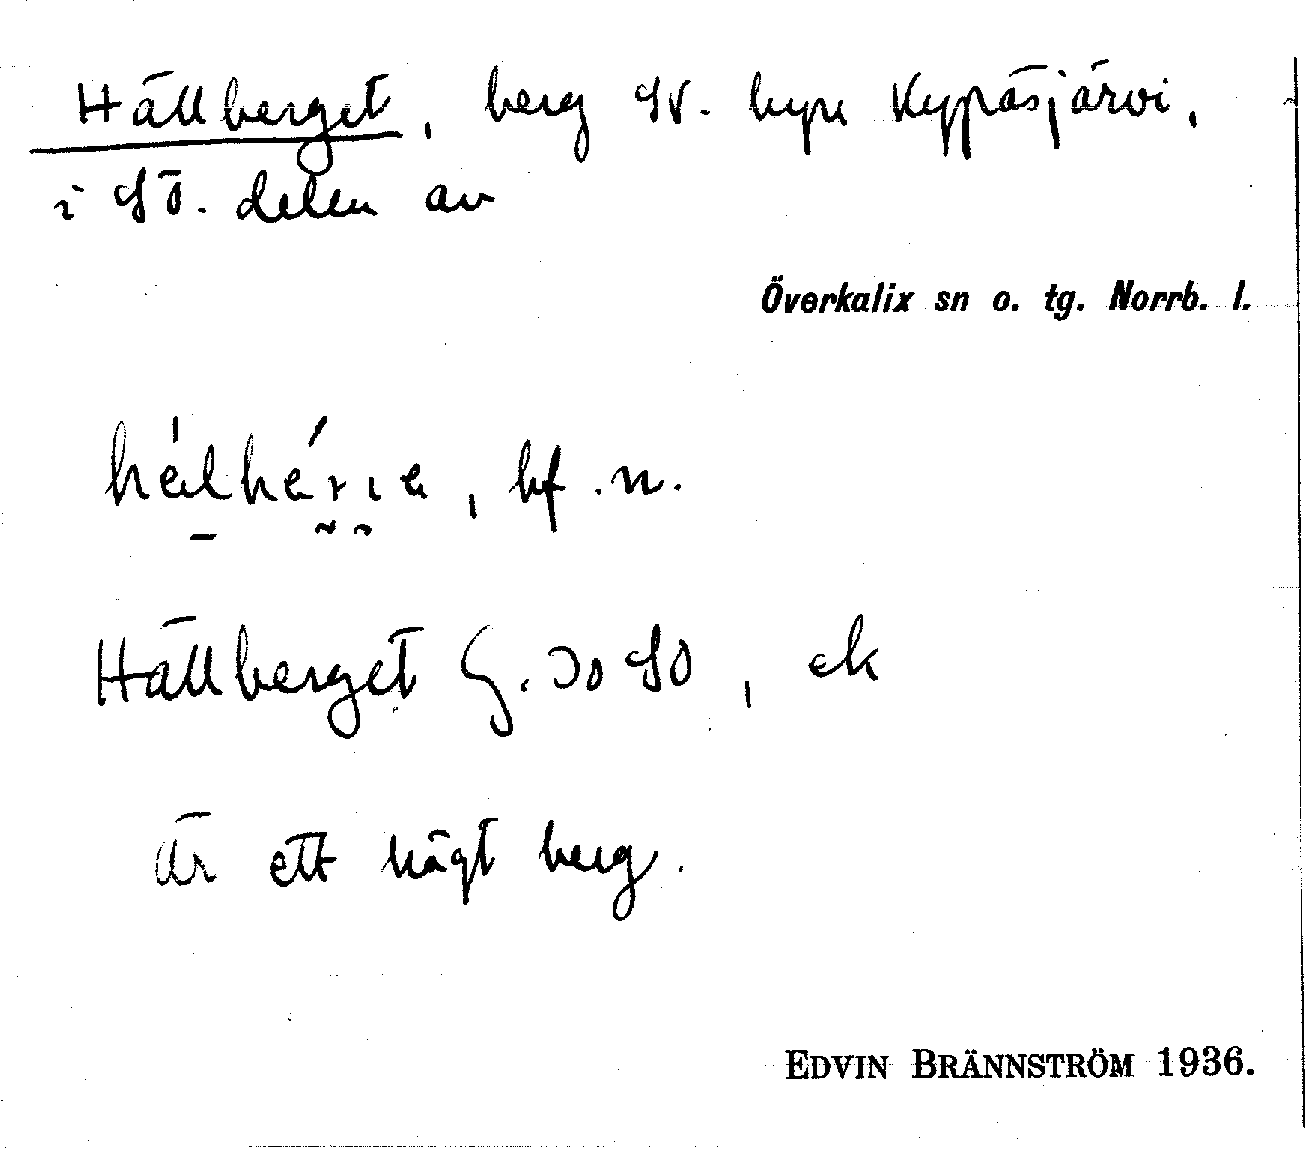 Hällberget, berg SV. byn Kypasjärvi,
i SÖ. delen av
Överkalix sn o. tg. Norrb. l.
bf. n.
Hällberget G. 30 SO, ek
är ett högt berg.
EDVIN BRÄNNSTRÖM 1936.